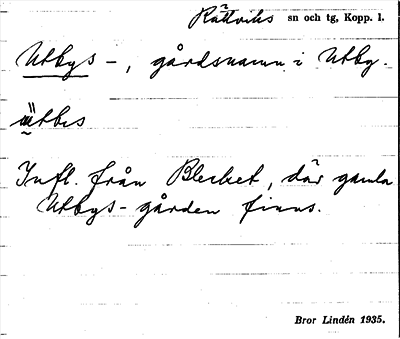 Rättviks sn och tg, Kopp. l.
Utbys-, gårdsnamn i Utby.
Infl. från Blecket, där gamla
Utbys-gården finns.
Bror Lindén 1935.